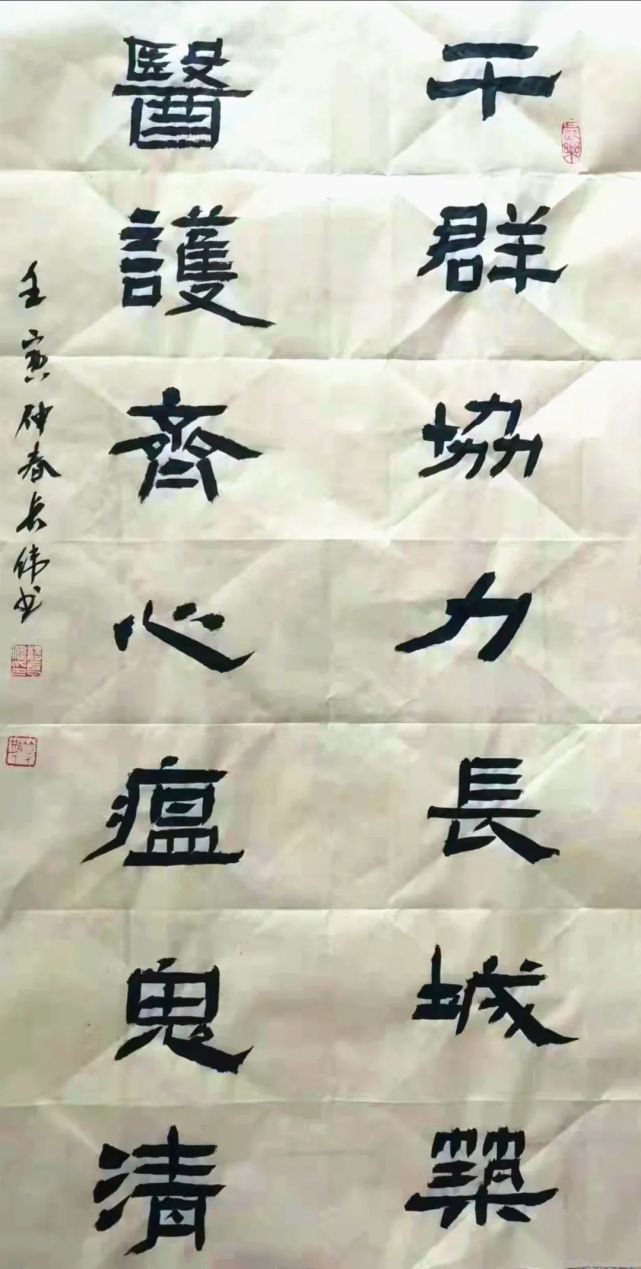 干群協力長城築
醫護齊心瘟鬼清
壬寅仲春长伟书